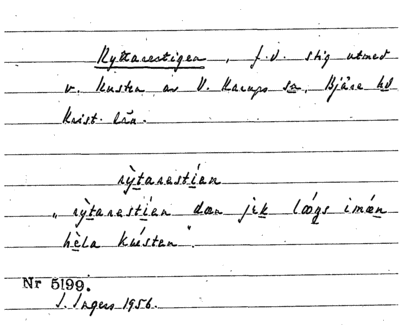 Ryttarestigen, f.d. stig utmed
v. kusten av V. Karups sn, Bjäre hd
Krist. län.
rỳtarestíen
"rỳtarestíen dæn jek låógs imǽn
hèla kústen".
Nr 5199.
I. Ingers 1956.